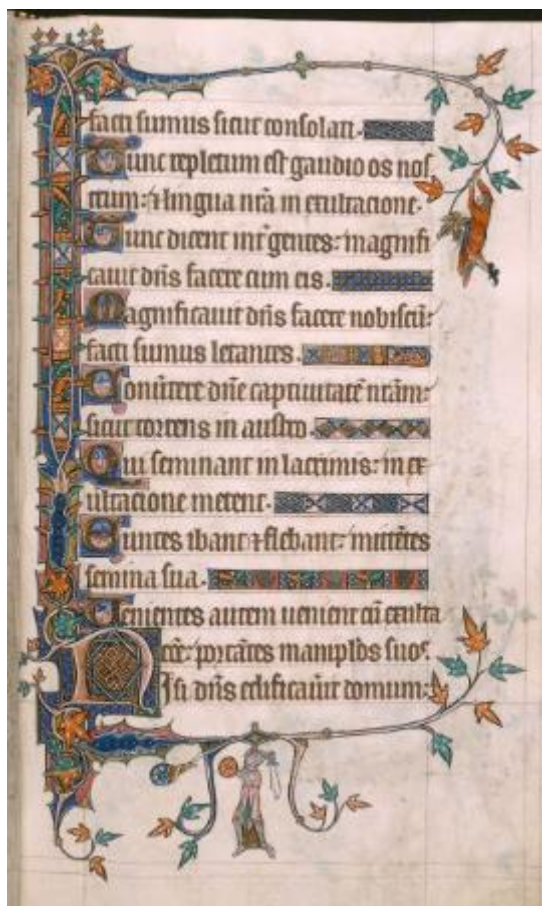 facti sumus sicut consolati.
Tunc repletum est gaudio os nos
trum: ⁊ lingua nr̄a in exultacione.
Tunc dicent int̄ gentes: magnifi
cauit dn̄s facere cum eis.
Magnificauit dn̄s facere nobiscū:
facti sumus letantes.
Conūtere dn̄e captiuitatē nr̄am:
sicut torrens in austro.
Qui seminant in lacrimis: in ex
ultacione metent.
Euntes ibant ⁊ flebant: mittētes
semina sua.
Uenientes autem uenient cū exulta
cōe: portātes maniplos suos.
Nisi dn̄s edificauīt domum: